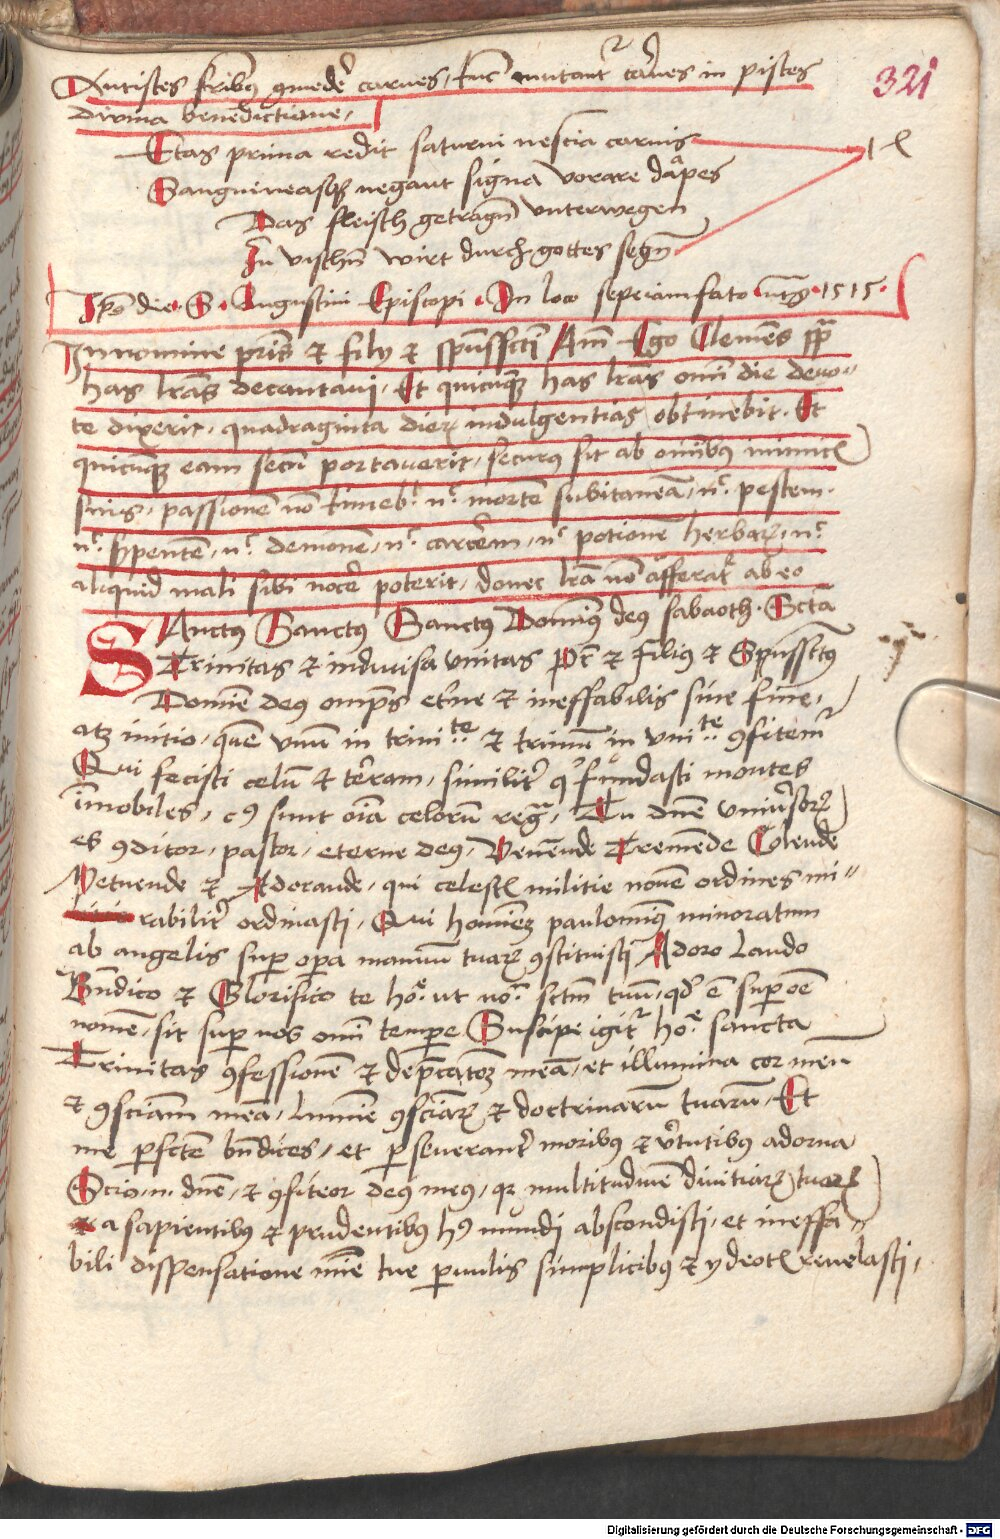 Antistes fribus gmedere carnes, tunc mutantur carnes in pisces
divina benedictione,
321
Etas prima redit saturni nescia carnis
Sanguineasque negant signa vorare dapes
Das fleisch getragn unterwegen
In vischn wirt durch gottes segn
Ipso die · S · Augustini Episcopi · In loco 1515 ·
In nomine pris et filij et spussscti Am Ego Clemens pp
has lras decantavi, Et quicunque has lras omni die devo-
te dixerit, quadraginta dierum indulgentias obtinebit. Et
quicunque eam secum portaverit, securus sit ab omnibus inimicis
suis, passionem non timebit nec mortem subitaneam, nec pestem.
nec serpentem, nec demonem, nec carcerem, nec potionem herbarum, nec
aliquid mali sibi nocere poterit, donec lra non afferatur ab eo
Sanctus Sanctus Sanctus Dominus deus sabaoth. Scta
Trinitas et indivisa unitas Pr et Filius et Spussctus
Domine deus omps eterne et ineffabilis sine fine,
atque initio, quem unum in trinitate et trinum in unitate confitemur
Qui fecisti celum et terram, similiter qui fundasti montes
immobiles, cuius sunt omnia celorum regna, Tu domine universorum
es conditor, pastor, eterne deus, Venerande Tremende Colende
Metuende et Adorande, qui celestis militie novem ordines mi-
rabiliter ordinasti, Qui hominem paulominus minoratum
ab angelis super opera manuum tuarum constituisti Adoro Laudo
Bndico et Glorifico te hodie ut nomen sctm tuum, quod est super omne
nomen, sit super nos omni tempore Suscipe igitur hodie sancta
Trinitas confessionem et deprecationem meam, et illumina cor meum
et conscientiam meam, lumine conscientiarum et doctrinarum tuarum, Et
me perfecte bndices, et perseveranter moribus et virtutibus adorna
Scio.n. domine, et confiteor deus meus, quia multitudinem divitiarum tuarum
a sapientibus et prudentibus huius mundi abscondisti, et ineffa-
bili dispensatione mie tue parvulis simplicibus et ydeotis revelasti,
Digitalisierung gefördert durch die Deutsche Forschungsgemeinschaft - DFG